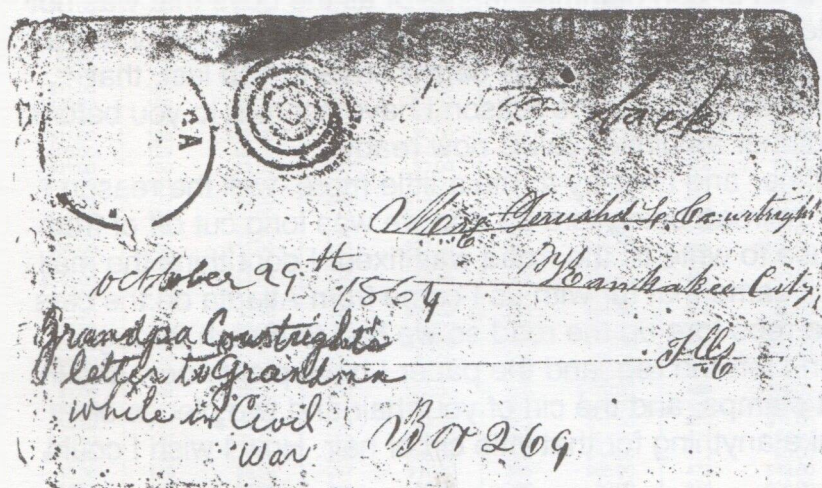 A
back
Mrs Jerusha L Courtright
Kankakee City
Ills
October 29th
1864
Grandpa Courtright's
letter to Grandma
while in Civil
War
Box 269